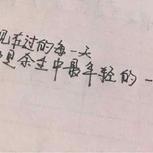 现在过的每一天
是余生中最年轻的一